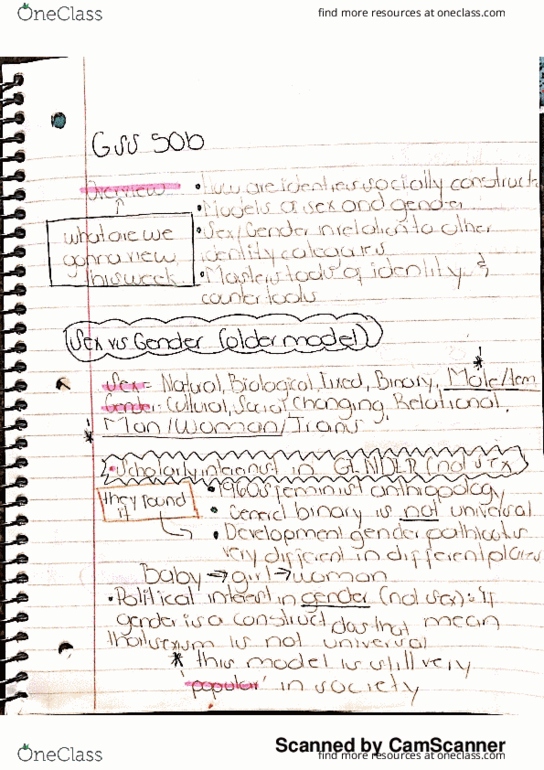 OneClass
find more resources at oneclass.com
GSS 50b
Overview
• How are identities socially construct
• Models of sex and gender
what are we
gonna view
this week
• Sex/Gender in relation to other
identity categories
• Masters tools of identity &
counter tools
Sex vs Gender (older model)
Sex = Natural, Biological, Fixed, Binary, Male/fem
Gender: Cultural, Social, Changing, Relational,
* Man/Woman/Trans
Scholarly interest in GENDER (not sex
they found
it
• 1960s feminist anthropology
• binary is not universal
• Development gender pathways
very different in different places
Baby → girl → woman
• Political interest in gender (not sex): If
gender is a construct does that mean
that sexism is not universal
* this model is still very
popular in society
Scanned by CamScanner
OneClass
find more resources at oneclass.com